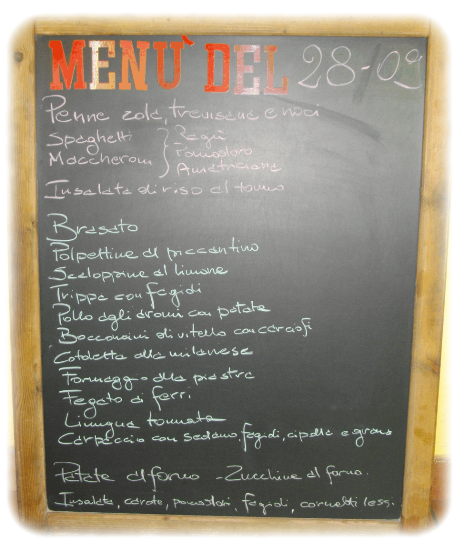 MENU' DEL 28-09
Penne zola, trevisana e noci
Spaghetti Ragù
Maccheroni Pomodoro
Amatriciana
Insalata di riso al tonno
Brasato
Polpettine al piccantino
Scaloppine al limone
Trippa con fagioli
Pollo agli aromi con patate
Bocconcini di vitello con carciofi
Cotoletta alla milanese
Formaggio alla piastra
Fegato ai ferri
Lingua tonnata
Carpaccio con sedano, fagioli, cipolla e grana
Patate al forno - Zucchine al forno.
Insalata, carote, pomodori, fagioli, cornetti lessi.